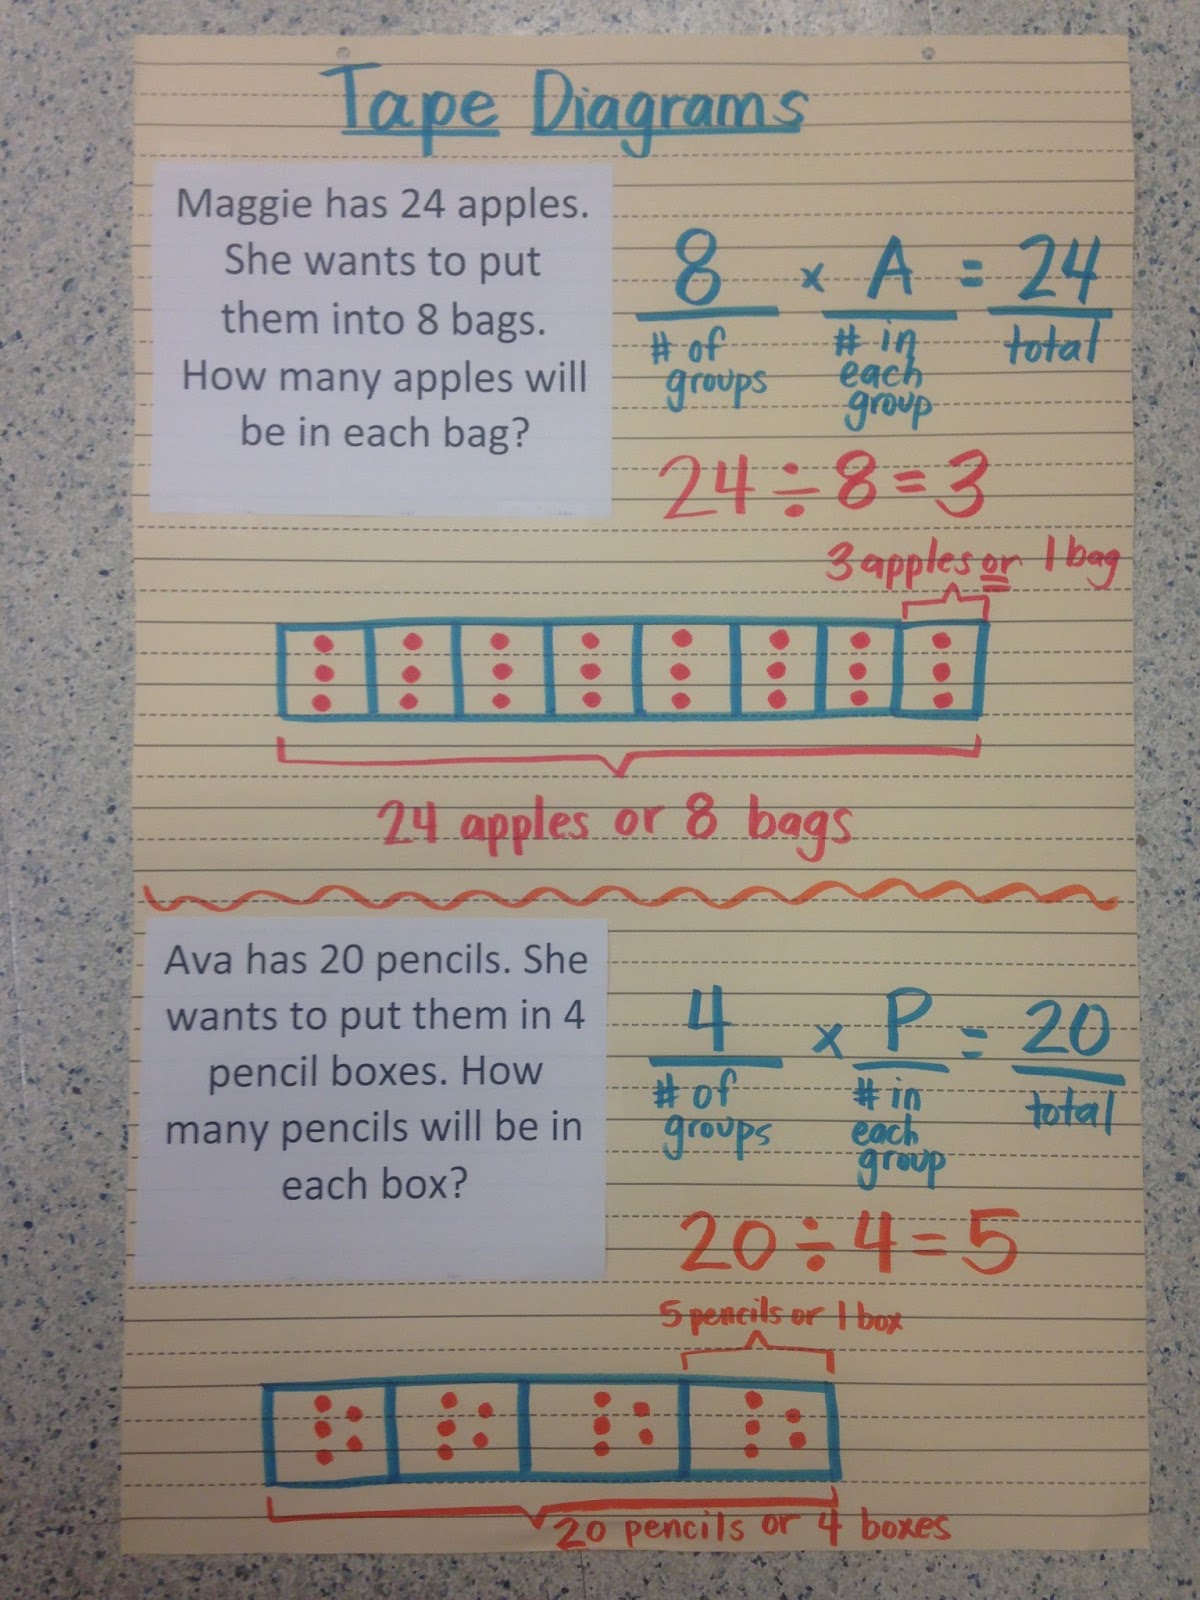 Tape Diagrams
Maggie has 24 apples.
She wants to put
them into 8 bags.
How many apples will
be in each bag?
8 x A = 24
# of groups
# in each group
total
24 ÷ 8 = 3
3 apples or 1 bag
24 apples or 8 bags
Ava has 20 pencils. She
wants to put them in 4
pencil boxes. How
many pencils will be in
each box?
4 x P = 20
# of groups
# in each group
total
20 ÷ 4 = 5
5 pencils or 1 box
20 pencils or 4 boxes